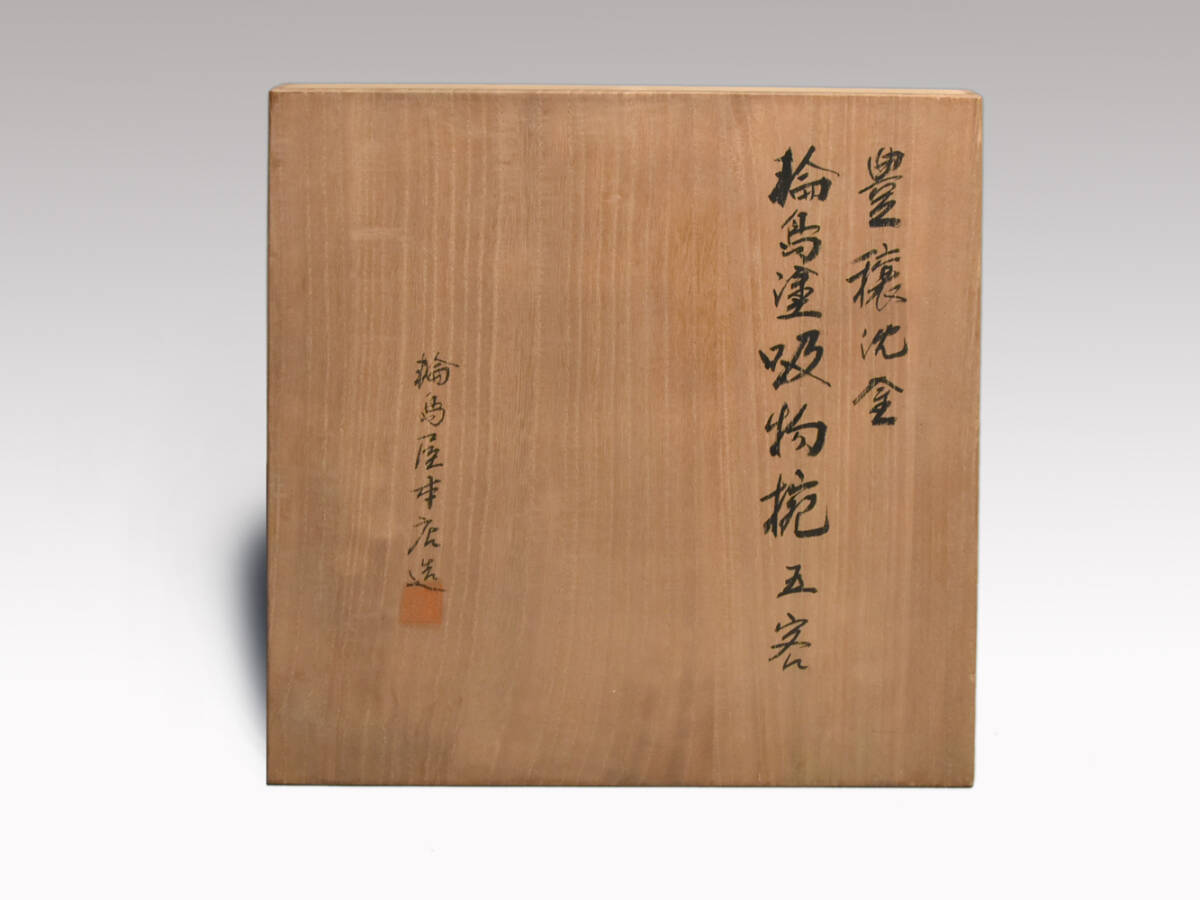 豊穣沈金
輪島塗吸物椀五客
輪島屋本店造